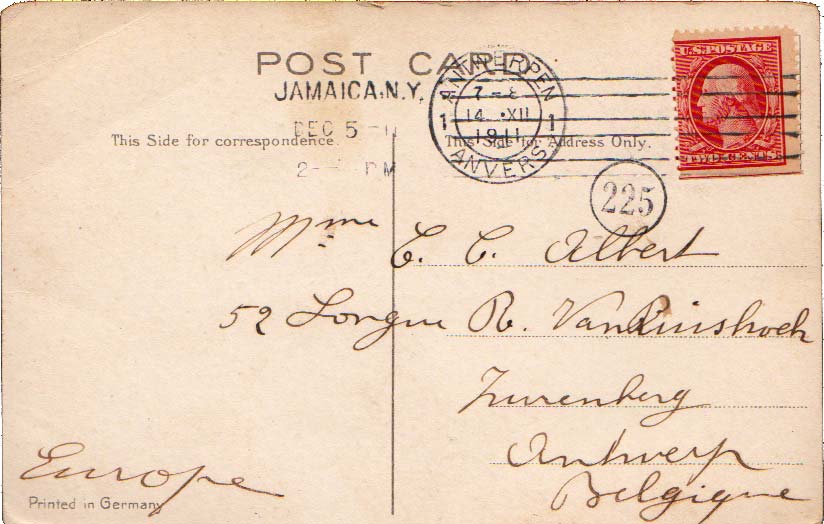 POST CARD
U.S. POSTAGE
JAMAICA, N.Y.
DEC 5 - 11
2 - PM
ANTWERPEN
7-8
14 XII
1911
1 1
ANVERS
This Side for correspondence.
This Side for Address Only.
TWO CENTS
225
Mme C. C. Albert
52 Longue R. Van Ruisbroek
Zurenberg
Antwerp
Belgique
Europe
Printed in Germany